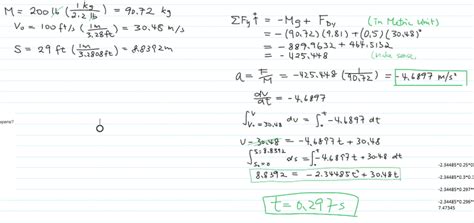 M = 200 lb (1 kg / 2.2 lb) = 90.72 kg
V₀ = 100 ft/s (1m / 3.28ft) = 30.48 m/s
S = 29 ft (1m / 3.2808ft) = 8.8392 m
ΣFy ↑ = -Mg + FDy (in Metric Units)
= -(90.72)(9.81) + (0.5)(30.48)²
= -889.9632 + 464.5152
= -425.448
a = F/M = -425.448 (1/90.72) = -4.6897 m/s²
dv/dt = -4.6897
∫ᵛ V₀=30.48 dv = ∫₀ᵗ -4.6897 dt
V - 30.48 = -4.6897 t + 30.48
∫ S=8.8392 S₀=0 ds = ∫₀ᵗ -4.6897t + 30.48 dt
8.8392 = -2.34485t² + 30.48t
t = 0.297 s
-2.34485*0.3^
-2.34485*0.297^
-2.34485*0.296^
7.47345